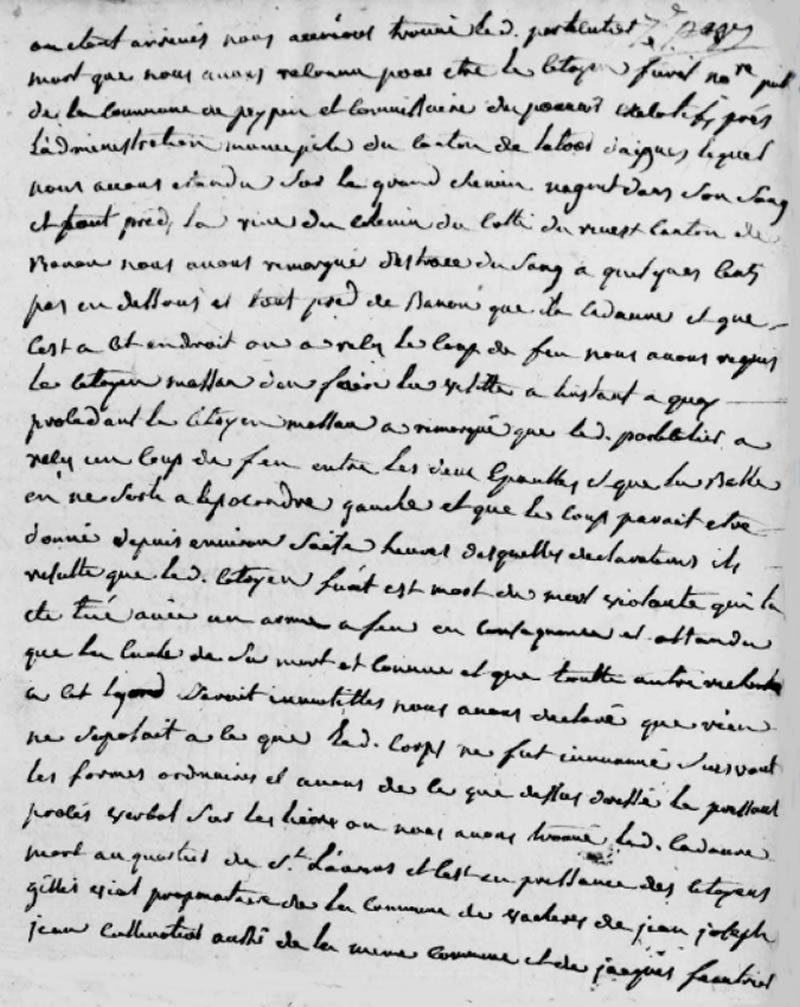 ou etant arrivés nous aurions trouvé led. particulier
mort que nous avons reconnu pour etre le Citoyen nore
de la Commune de peypin et Commissaire du pouvoir exécutif prés
L'administration municipale du Canton de latour d'aigues lequel
nous avons etandu Sur le grand chemin nageant dans Son Sang
et tout pred la rive du chemin du Collé du revest Canton de
Banon nous avons remarqué des trace du Sang a quelques Cents
pas en dessous et tout pred de Banon que du Cadavre et que
C'est a Cet endroit ou a reçu le Coup de feu nous avons requis
le Citoyen massan d'en faire la visitte a linstant a quoy
procedant le Citoyen massan a remarqué que led. particulier a
reçu un Coup de feu entre les deux Epaulles et que la Balle
en ne Sortit a lipocondre gauche et que le Coup paroit etre
donné depuis environ Sâite heures desquelles declarations ils
resulte que led. Citoyen est mort de mort violante quil a
ete tué avec un arme a feu en Consequance et attandu
que la Cause de Sa mort et Connue et que toutte autre recherche
a Cet egard Seroit innutilles nous avons declaré que rien
ne Sopotait a Ce que led. Corps ne fut innumé Suivant
les formes ordinaires et avons de Ce que dessus dressé le pressant
procés verbal Sur les lieux ou nous avons trouvé led. Cadavre
mort au quartier de St. et C'est en pressance des Citoyens
gillis vial propriettaire de la Commune de vacheres de jean joseph
jean Cultivatier aussi de la meme Commune et de jacques